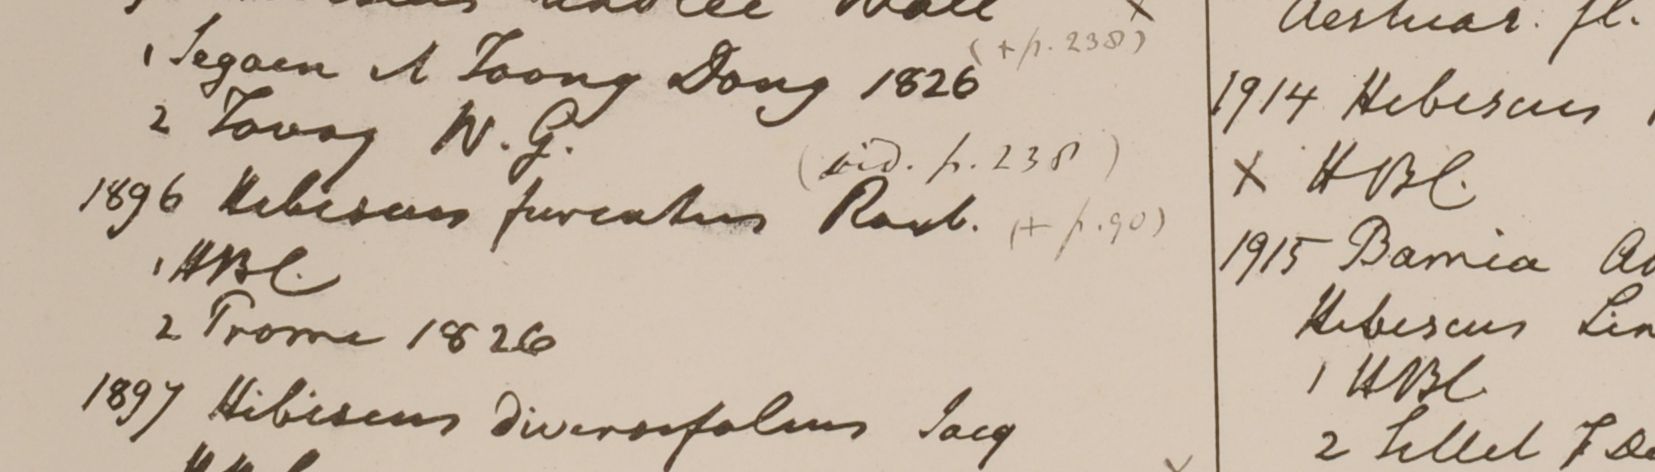 (+ p. 238)
1 Segaen & Toong Dong 1826
2 Tavoy W. G.
(vid. p. 238)
1896 Hibiscus furcatus Roxb. (+ p. 90)
1 HBC.
2 Prome 1826
1897 Hibiscus diversifolius Jacq
Aestuar. fl.
1914 Hibiscus
x HBC.
1915 Bamia
Hibiscus Lin
1 HBC
2